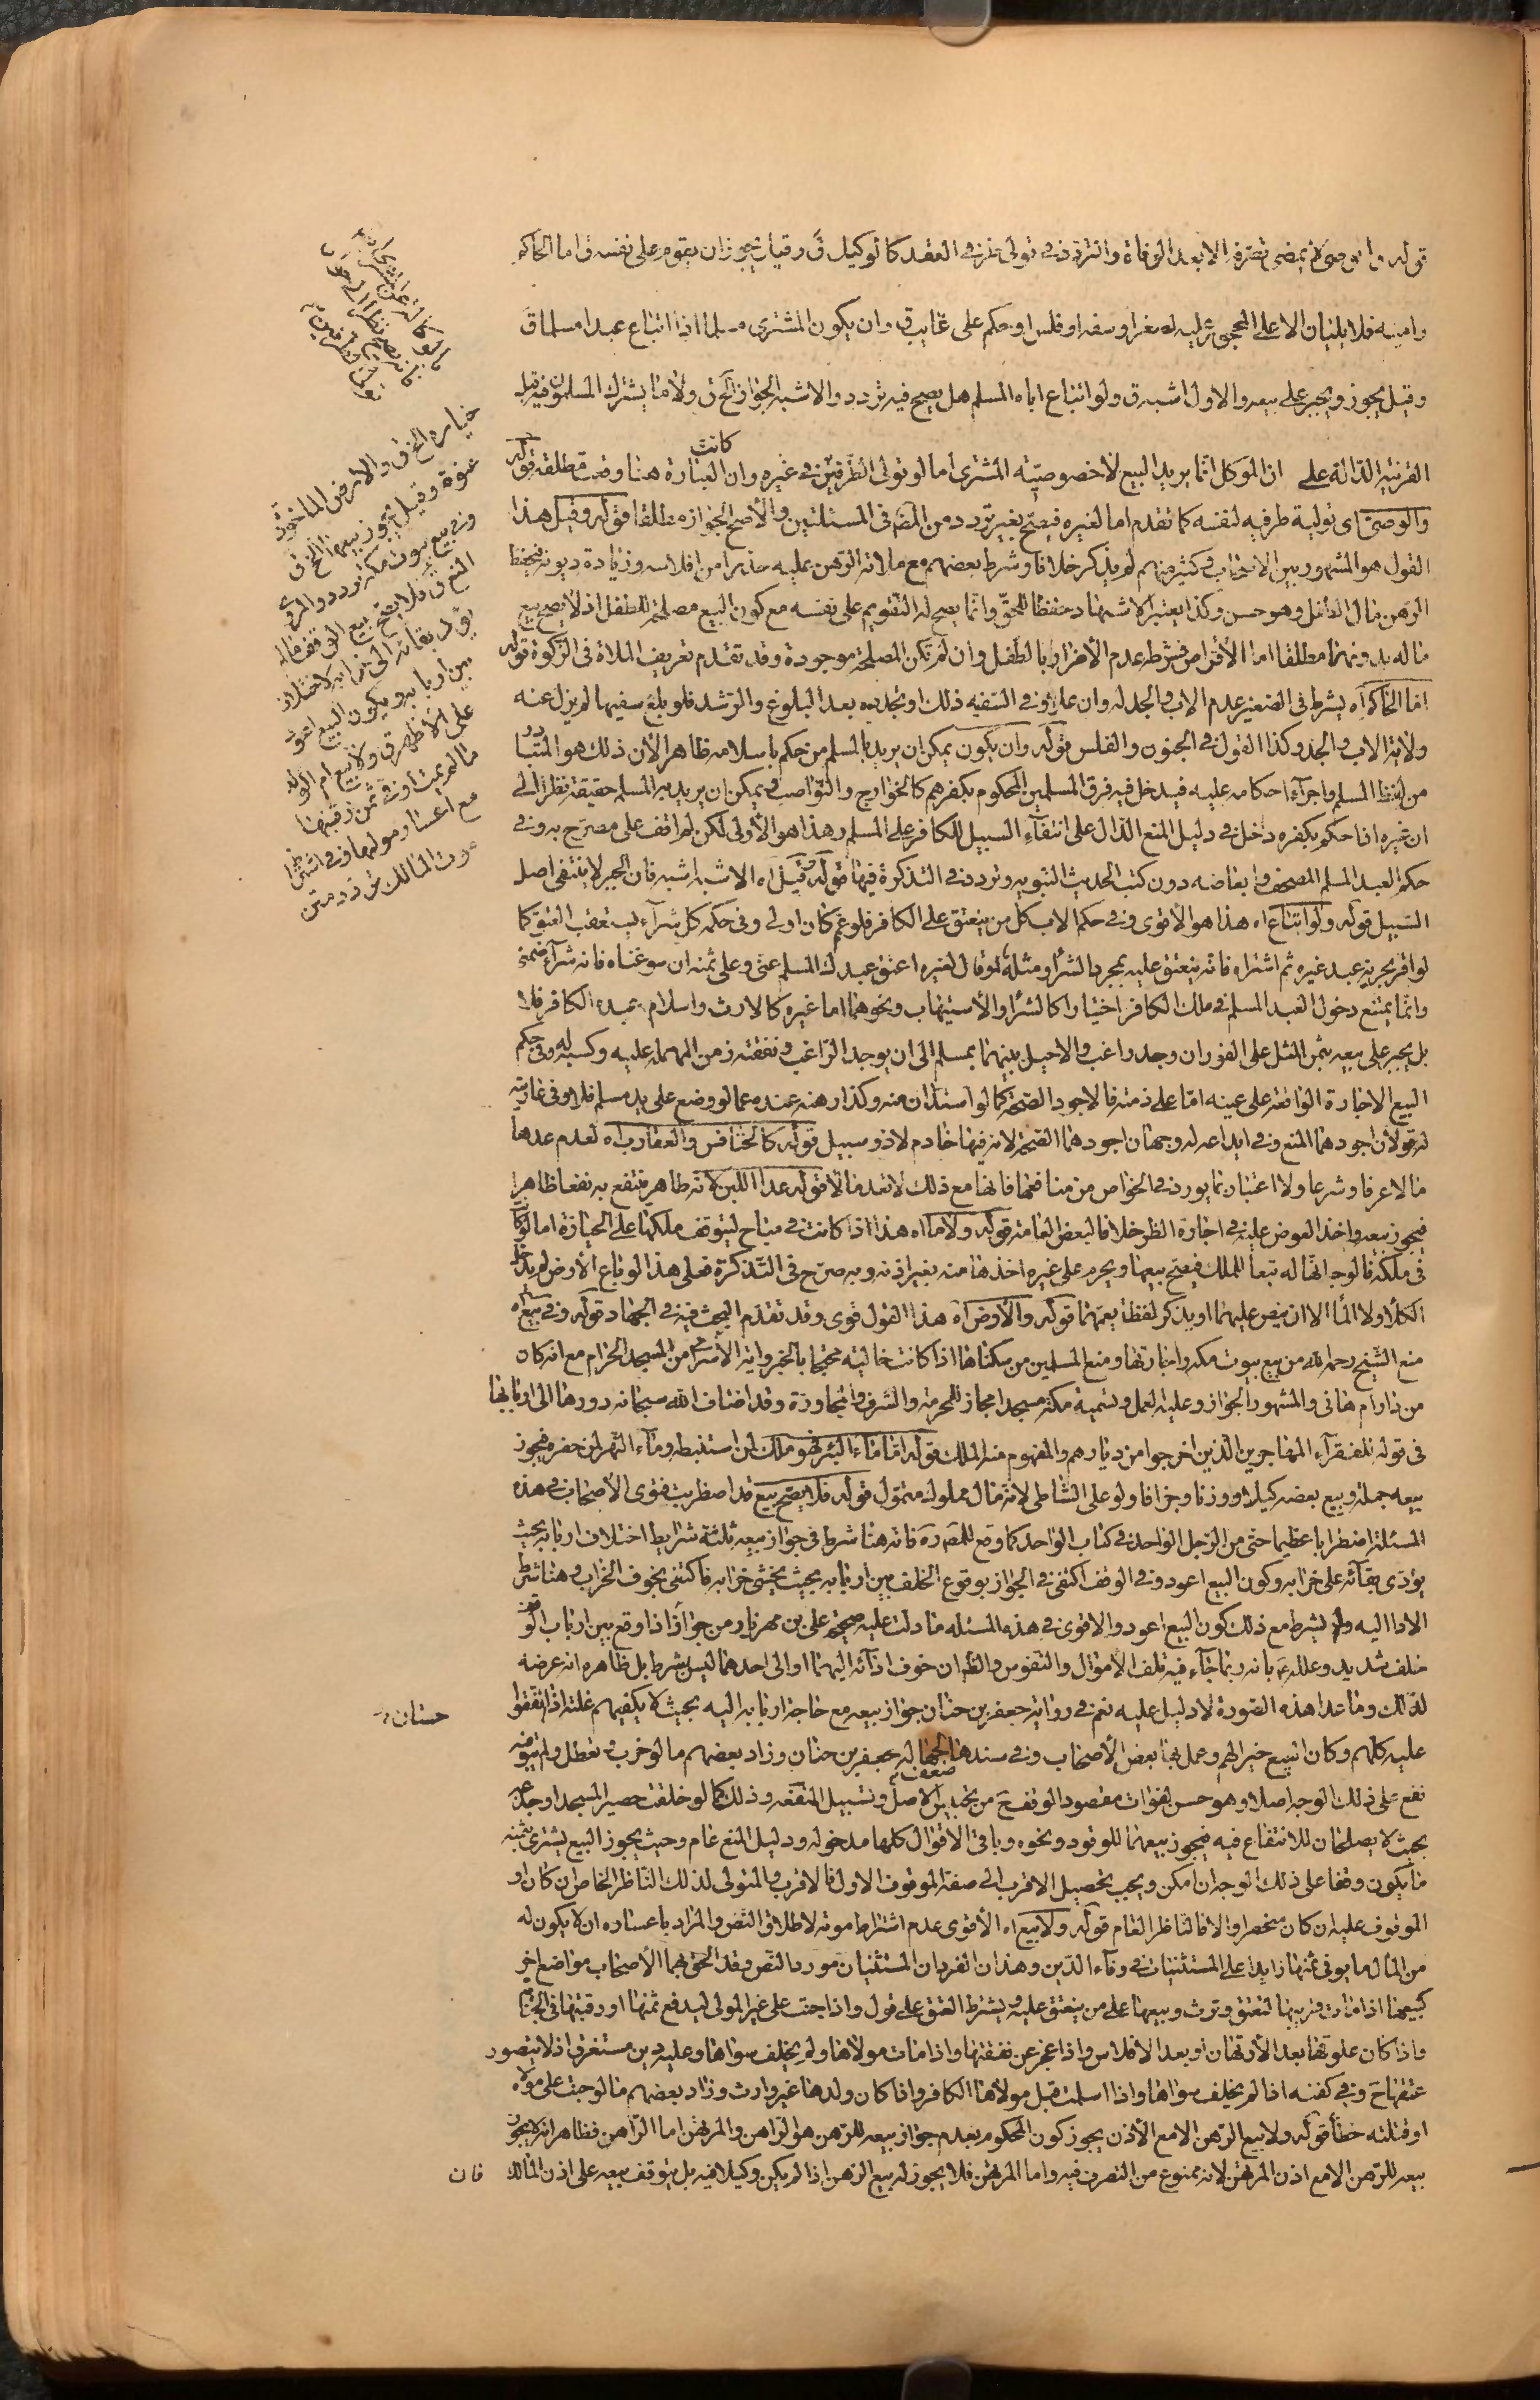 قوله والوصى لا يمضى تصرفه الا بعد الوفاة والتردد فى تولى طرفى العقد كالوكيل ق وقيل يجوز ان يقوم على نفسه ق اما الحاكم
وامينه فلا يليان الا على المحجور عليه لصغر او سفه او فلس او حكم على غايب ق وان يكون المشترى مسلما اذا ابتاع عبدا مسلما ق
وقيل يجوز ويجبر على بيعه والاول اشبه ق ولو ابتاع اباه المسلم هل يصح فيه تردد والاشبه الجواز الخ ق ولا ما يشترك المسلمون فيه قبل
القرينة الدالة على ان الموكل انما يريد البيع لا خصوصية المشترى اما لو تولى الطرفين فى غيره وان كانت العبارة هنا وقعت مطلقة قوله
والوصى اى تولية طرفيه لنفسه كما تقدم اما لغيره فيصح بغير تردد من المصر فى المسئلتين والاصح الجواز مطلقا قوله وقيل هذا
القول هو المشهور بين الاصحاب وكثير منهم لم يذكر خلافا وشرط بعضهم مع ملائه الرهن عليه حذرا من افلاسه وزيادة ديونه فيحفظ
الرهن مال الطفل وهو حسن وكذا يعتبر الاشهاد حفظا للحق وانما يصح له التقويم على نفسه مع كون البيع مصلحة للطفل اذ لا يصح بيع
ماله بدونها مطلقا اما الاقراض فشرطه عدم الاضرار بالطفل وان لم تكن المصلحة موجودة وقد تقدم تعريف الملاة فى الزكوة قوله
اما الحاكم اه يشرط فى الصغير عدم الاب والجد له وان علا وفى السفيه ذلك او تجدده بعد البلوغ والرشد فلو بلغ سفيها لم يزل عنه
ولاية الاب والجد وكذا القول فى الجنون والفلس قوله وان يكون يمكن ان يريد بالمسلم من حكم باسلامه ظاهرا لان ذلك هو المتبادر
من لفظ المسلم واجراء احكامه عليه فيدخل فيه فرق المسلمين المحكوم بكفرهم كالخوارج والنواصب ويمكن ان يريد به المسلم حقيقة نظرا الى
ان غيره اذا حكم بكفره دخل فى دليل المنع الدال على انتفاء السبيل للكافر على المسلم وهذا هو الاولى لكن لم اقف على مصرح به وفى
حكم العبد المسلم المصحف وابعاضه دون كتب الحديث النبويه وتردد فى التذكرة فيها قوله وقيل اه الاشبه اشبه فان الجبر لا ينتفى اصل
السبيل قوله ولو ابتاع اه هذا هو الاقوى وفى حكم الاب كل من ينعتق على الكافر فلو عم كان اولى وفى حكمه كل شراء يستعقب العتق كما
لو اقر بحرية عبد غيره ثم اشتراه فانه ينعتق عليه بمجرد الشراء ومثله لو قال لغيره اعتق عبدك المسلم عنى وعلى ثمنه ان سوغناه فانه شراء ضمنى
وانما يمتنع دخول العبد المسلم فى ملك الكافر اختيارا كالشراء والاستيهاب ونحوهما اما غيره كالارث واسلام عبده الكافر فلا
بل يجبر على بيعه بثمن المثل على الفور ان وجد راغب والا حيل بينهما بمسلم الى ان يوجد الراغب ونفقته زمن المهملة عليه وكسبه له وفى حكم
البيع الاجارة الواقعة على عينه اما على ذمته فالاجود الصحة كما لو استدان منه وكذا رهنه عنده عما لو وضع على يد مسلم فلا وفى عاريته
له قولان اجودهما المنع وفى ايداعه له وجهان اجودهما الصحة لانه فيها خادم لا ذو سبيل قوله كالخنافس والعقارب اه لعدم عدها
مالا عرفا وشرعا ولا اعتبار بما يورد فى الخواص من منافعها فانها مع ذلك لا تعد مالا قوله عدا اللبن لانه طاهر منتفع به نفعا ظاهرا
فيجوز بيعه واخذ العوض عليه فى اجارة الظئر خلافا لبعض العامه قوله ولا ما اه هذا اذا كانت فى مباح ليتوقف ملكها على الحيازة اما لو كانت
فى ملكه فالوجه انها له تبعا للملك فيصح بيعها ويحرم على غيره اخذها منه بغير اذنه وبه صرح فى التذكرة فعلى هذا لو باع الارض لم يدخل
الكلأ ولا الماء الا ان ينص عليهما او يذكر لفظا يعمهما قوله والارض اه هذا القول قوى وقد تقدم البحث فيه فى الجهاد قوله وفى بيع اه
منع الشيخ رحمه الله من بيع بيوت مكه واجارتها ومنع المسلمين من سكناها اذا كانت خاليه محتجا بالخبر واية الاسراء من المسجد الحرام مع انه كان
من دار ام هانى والمشهور الجواز وعليه العمل وتسمية مكة مسجدا مجاز للحرمة والشرف والمجاورة وقد اضاف الله سبحانه دورها الى اربابها
فى قوله للفقراء المهاجرين الذين اخرجوا من ديارهم والمفهوم منه الملك قوله اما ماء البئر فهو ملك لمن استنبطه وماء النهر لمن حفره فيجوز
بيعه جملة وبيع بعضه كيلا ووزنا وجزافا ولو على الشاطى لانه مال مملوك متمول قوله فلا يصح بيع قد اضطربت فتوى الاصحاب فى هذه
المسئلة اضطرابا عظيما حتى من الرجل الواحد فى كتاب الواحد كما وقع للمصر ره فانه هنا شرط فى جواز بيعه ثلثة شرايط اختلاف اربابه بحيث
يؤدى بقائه على خرابه وكون البيع اعود وفى الوقف اكتفى فى الجواز بوقوع الخلف بين اربابه بحيث يخشى خرابه فاكتفى بخوف الخراب وهنا شرط
الاداء اليه ولم يشرط مع ذلك كون البيع اعود والاقوى فى هذه المسئله ما دلت عليه صحيحة على بن مهزيار من جوازه اذا وقع بين ارباب الوقف
خلف شديد وعلله ع بانه ربما جاء فيه تلف الاموال والنفوس والظ ان خوف ادائه اليهما او الى احدهما ليس بشرط بل ظاهره انه عرضة
لذلك وما عدا هذه الصورة لا دليل عليه نعم فى رواية جعفر بن حنان جواز بيعه مع حاجة اربابه اليه بحيث لا يكفيهم غلته اذا اتفقوا
عليه كلهم وكان البيع خيرا لهم وعمل بها بعض الاصحاب وفى سندها ضعف لجهالة جعفر بن حنان وزاد بعضهم ما لو خرب وتعطل ولم يبق فيه
نفع على ذلك الوجه اصلا وهو حسن لفوات مقصود الوقف ح من تحبيس الاصل وتسبيل المنفعه وذلك كما لو خلقت حصير المسجد او جذعه
بحيث لا يصلحان للانتفاع فيه فيجوز بيعهما للوقود ونحوه وباقى الاقوال كلها مدخوله ودليل المنع عام وحيث يجوز البيع يشترى بثمنه
ما يكون وقفا على ذلك الوجه ان امكن ويجب تحصيل الاقرب الى صفة الموقوف الاول فالاقرب والمتولى لذلك الناظر الخاص ان كان او
الموقوف عليه ان كان منحصرا والا فالناظر العام قوله ولا بيع اه الاقوى عدم اشتراط موته لاطلاق النص والمراد باعساره ان لا يكون له
من المال ما يوفى ثمنها زايدا على المستثنيات فى وفاء الدين وهذان الفردان المستثنيان مورد النص وقد الحق بهما الاصحاب مواضع اخر
كبيعها اذا مات قريبها لتعتق وترث وبيعها على من ينعتق عليه وبشرط العتق على قول واذا جنت على غير المولى ليدفع ثمنها او رقبتها فى الجناية
واذا كان علوقها بعد الارتهان او بعد الافلاس واذا عجز عن نفقتها واذا مات مولاها ولم يخلف سواها وعليه دين مستغرق اذ لا يتصور
عتقها ح وفى كفنه اذا لم يخلف سواها واذا اسلمت قبل مولاها الكافر واذا كان ولدها غير وارث وزاد بعضهم ما لو جنت على مولاه
او قتلته خطأ قوله ولا بيع الرهن الا مع الاذن يجوز كون المحكوم بعدم جواز بيعه للرهن هو الراهن والمرتهن اما الراهن فظاهر انه لا يجوز
بيعه للرهن الا مع اذن المرتهن لانه ممنوع من التصرف فيه واما المرتهن فلا يجوز له بيع الرهن اذا لم يكن وكيلا فيه بل يتوقف بيعه على اذن المالك
فان
حسان
خيازه الخ ق والارض الماخوذة
عنوة وقيل يجوز بيعها الخ ق
وفى بيع بيوت مكة تردد والمروى
المنع ق فلا يصح بيع الوقف ما لم
يؤد بقائه الى خرابه لاختلاف
بين اربابه ويكون البيع اعود
على الاظهر ق ولا بيع ام الولد
ما لم يمت او فى ثمن رقبتها
مع اعسار مولاها وفى اشتراط
موت المالك تردد متن